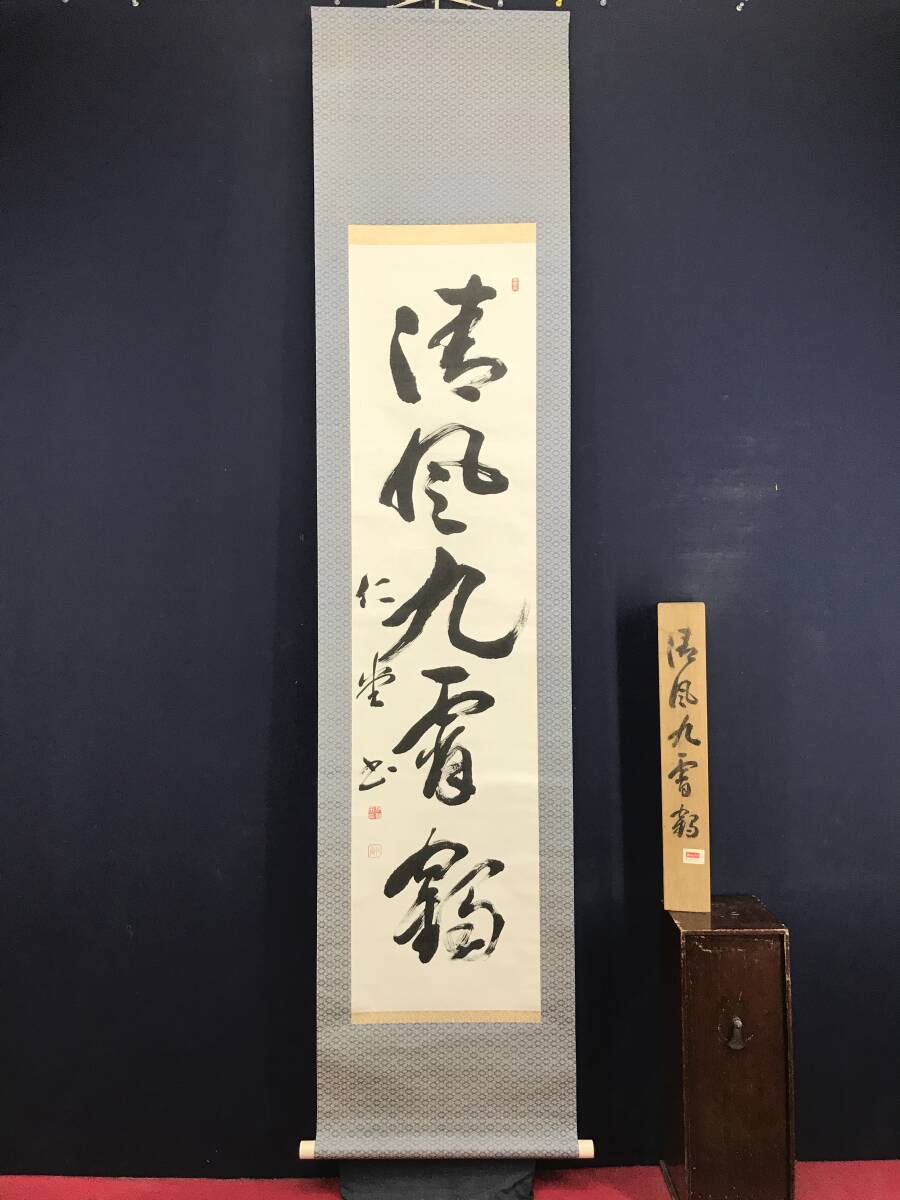 清風九霄鶴
仁堂書
清風九霄鶴